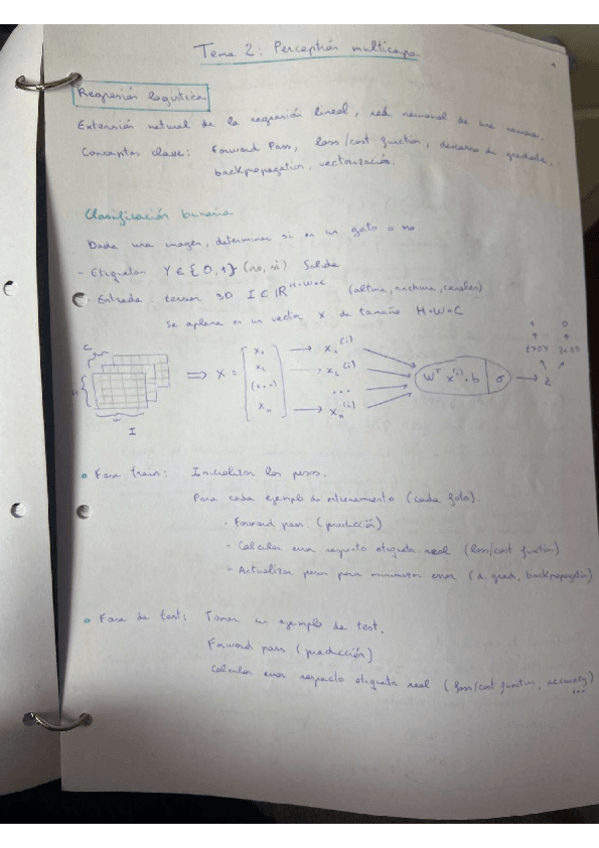 Tema 2: Perceptrón multicapa
Regresión logística
Extensión natural de la regresión lineal, red neuronal de una neurona.
Conceptos clave: Forward Pass, loss/cost function, descenso de gradiente,
backpropagation, vectorización.
Clasificación binaria
Dada una imagen, determinar si es un gato o no
- Etiquetas Y ∈ {0,1} (no, sí) Salida
- Entrada tensor 3D I ∈ ℝ^H·W·C (altura, anchura, canales)
Se aplana en un vector x de tamaño H·W·C
C
I
⇒ X = [x₁ x₂ (...) xₙ]
→ x₁^(i)
→ x₂^(i)
...
→ xₙ^(i)
Wᵀ x^(i) + b | σ → 
1 0
• Fase train: Inicializar los pesos.
Para cada ejemplo de entrenamiento (cada foto).
- Forward pass. (predicción)
- Calcular error respecto etiqueta real (loss/cost function)
- Actualizar pesos para minimizar error (d. grad, backpropagation)
• Fase de test: Tomar un ejemplo de test.
Forward pass (predicción)
Calcular error respecto etiqueta real (loss/cost function, accuracy)
...